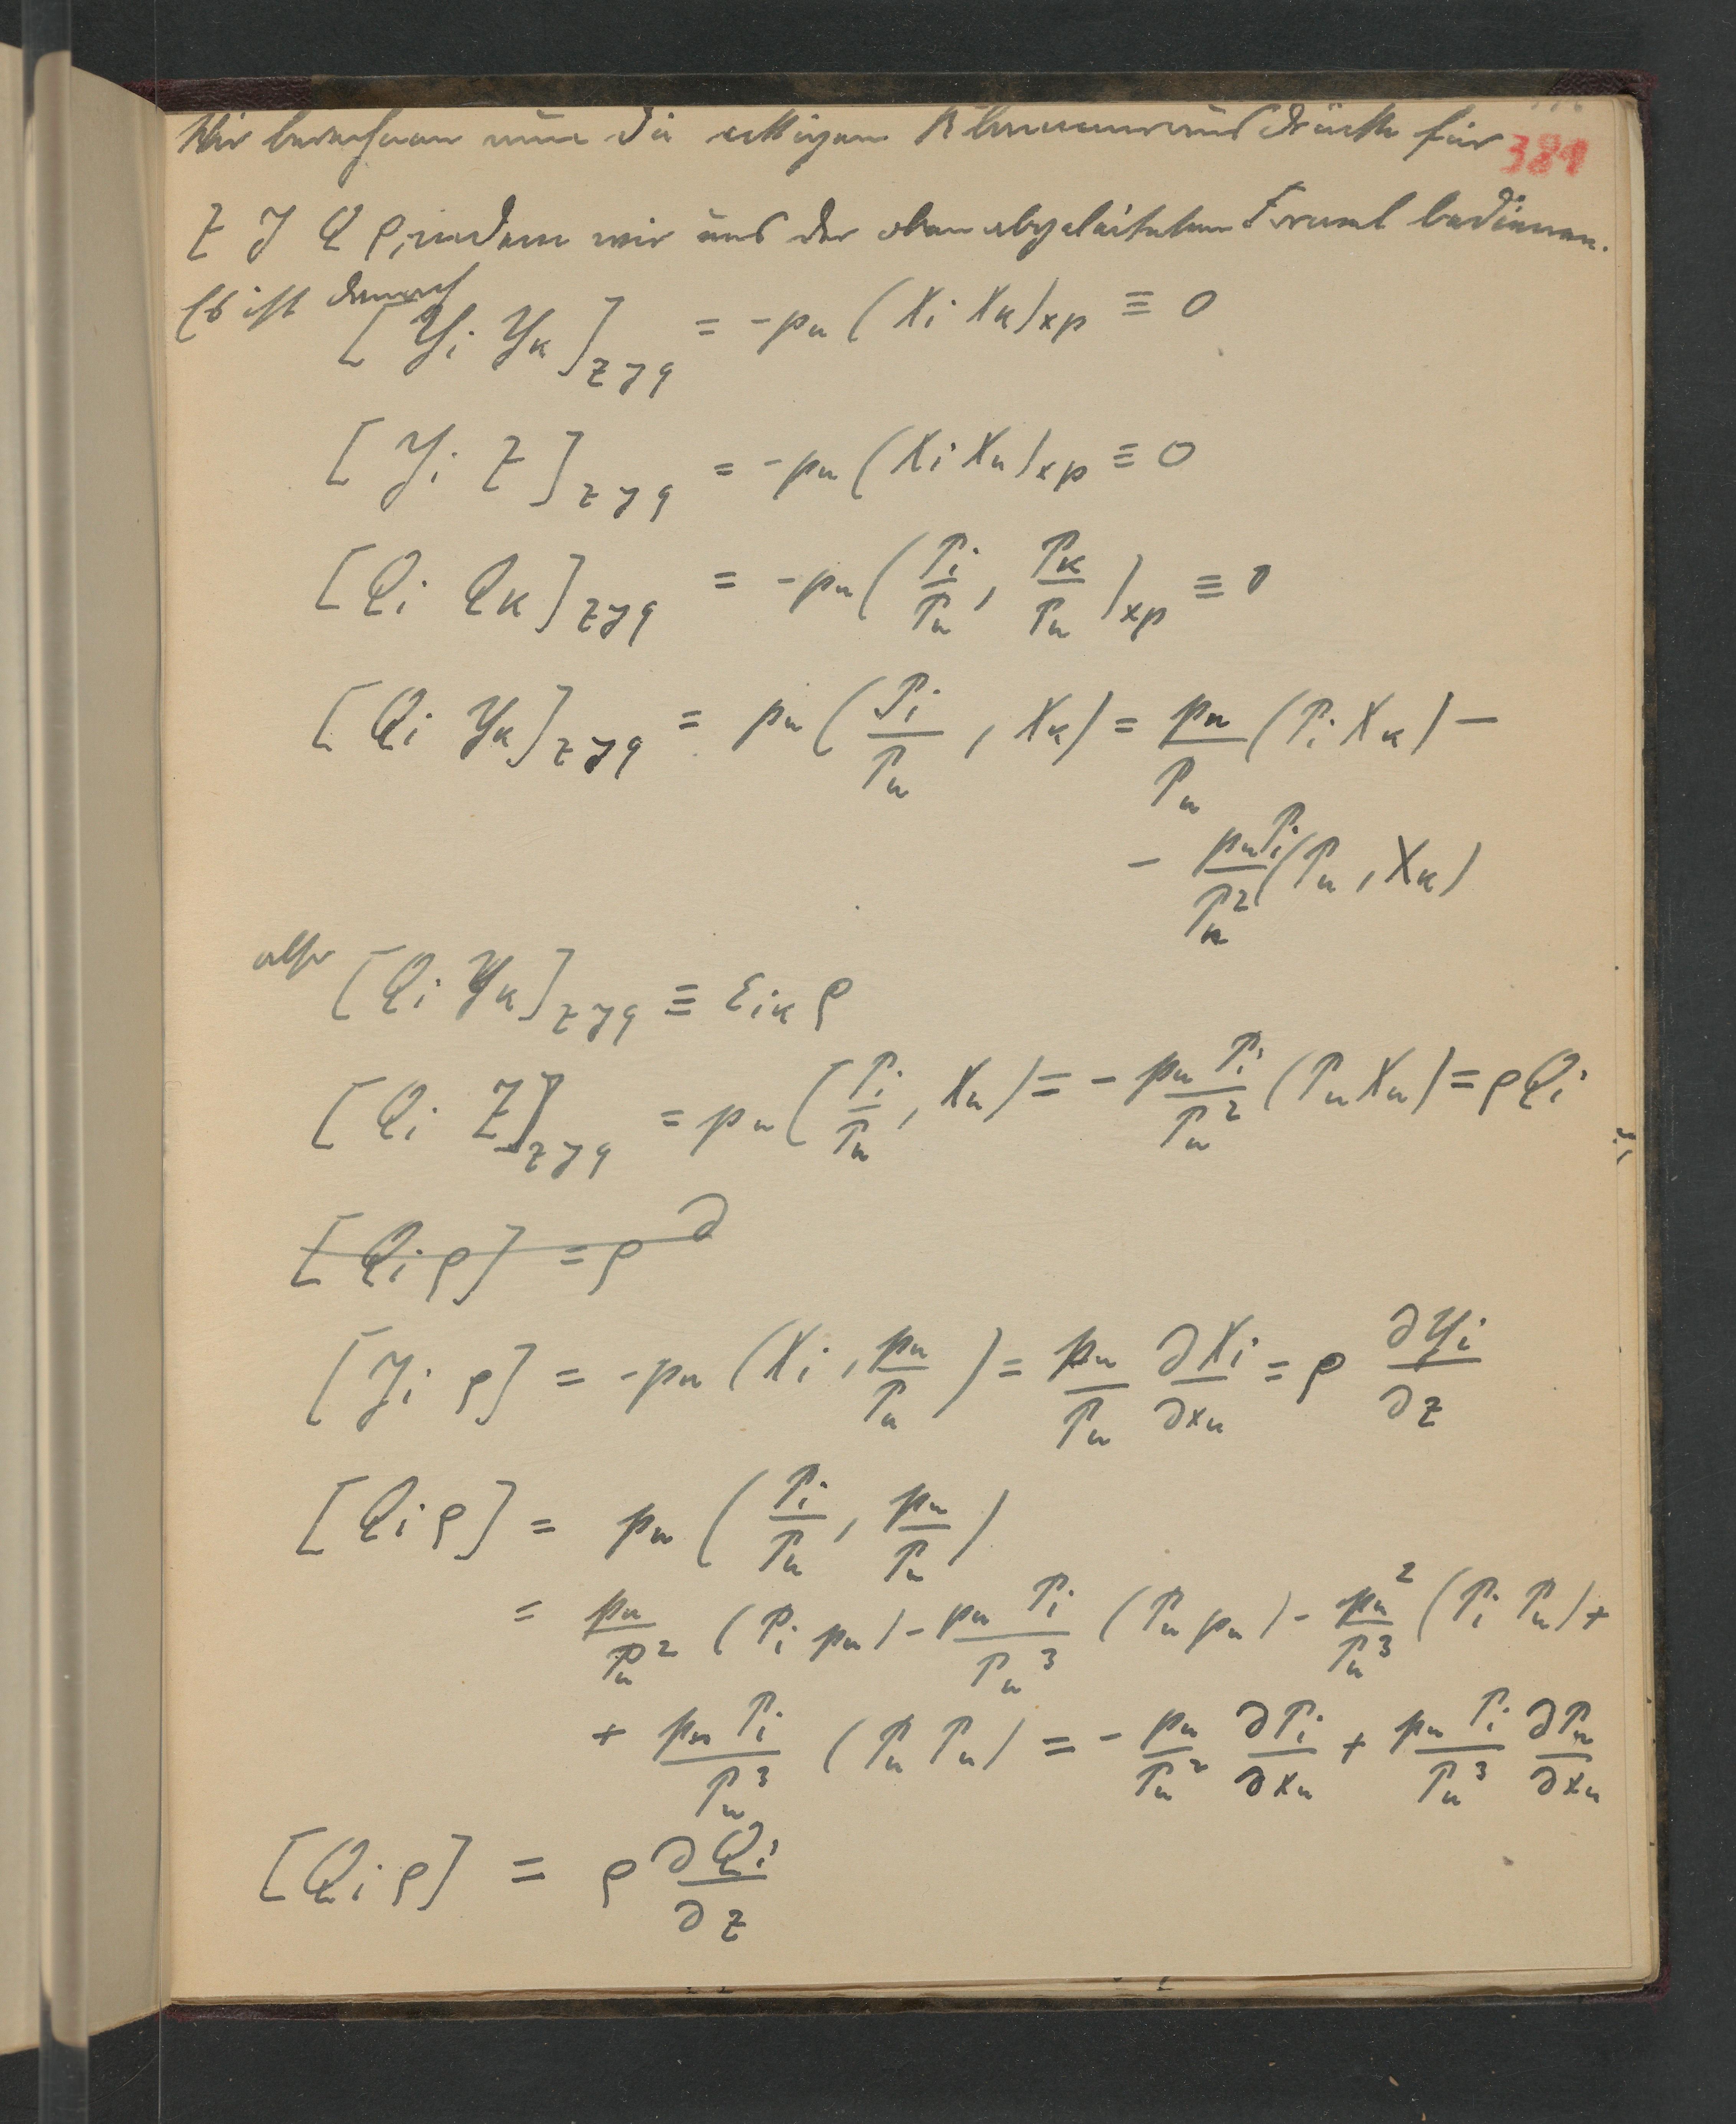 Wir berechnen nun die eckigen Klammerausdrücke für
381
Z Y Q ρ, indem wir uns der oben abgeleiteten Formel bedienen.
Es ist danach
[Y_i Y_κ]_{z y q} = -p_n (X_i X_κ)_{xp} ≡ 0
[Y_i Z]_{z y q} = -p_n (X_i X_n)_{xp} ≡ 0
[Q_i Q_κ]_{z y q} = -p_n (P_i/P_n, P_κ/P_n)_{xp} ≡ 0
[Q_i Y_κ]_{z y q} = p_n (P_i/P_n, X_κ) = p_n/P_n (P_i X_κ) -
- p_n P_i/P_n^2 (P_n, X_κ)
also [Q_i Y_κ]_{z y q} ≡ ε_{iκ} ρ
[Q_i Z]_{z y q} = p_n (P_i/P_n, X_n) = - p_n P_i/P_n^2 (P_n X_n) = ρ Q_i
[Q_i ρ] = ρ ∂
[Y_i ρ] = -p_n (X_i, p_n/P_n) = p_n/P_n ∂X_i/∂x_n = ρ ∂Y_i/∂z
[Q_i ρ] = p_n (P_i/P_n, p_n/P_n)
= p_n/P_n^2 (P_i p_n) - p_n P_i/P_n^3 (P_n p_n) - p_n^2/P_n^3 (P_i P_n) +
+ p_n P_i/P_n^3 (P_n P_n) = - p_n/P_n^2 ∂P_i/∂x_n + p_n P_i/P_n^3 ∂P_n/∂x_n
[Q_i ρ] = ρ ∂Q_i/∂z